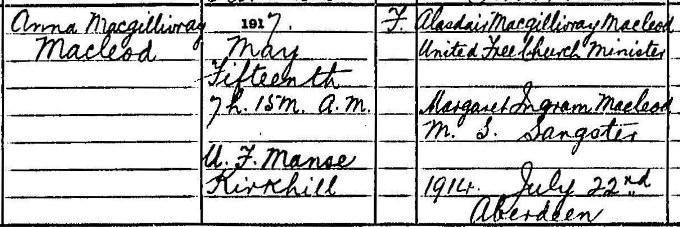 Anna Macgillivray
Macleod
1917.
May
Fifteenth
7h. 15M. A.M.
U. F. Manse
Kirkhill
F.
Alasdair Macgillivray Macleod
United Free Church Minister
Margaret Ingram Macleod
M. S. Sangster
1914. July 22nd
Aberdeen